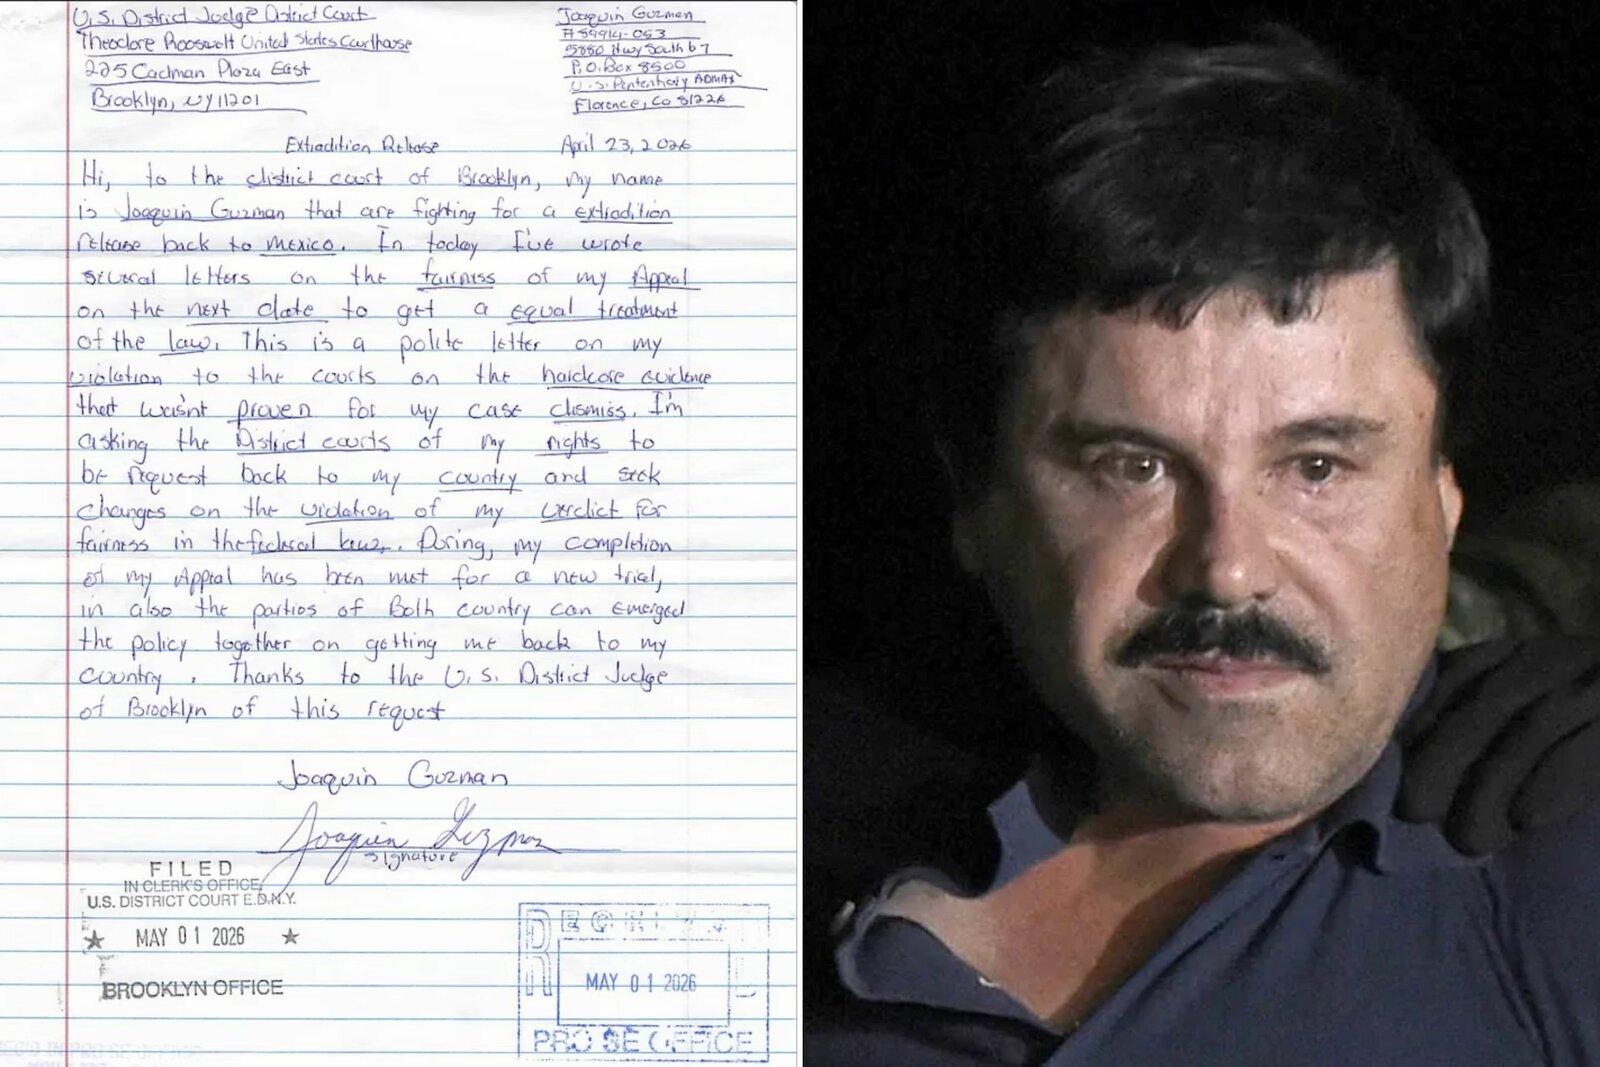 U.S. District Judge District Court
Theodore Roosevelt United States Courthouse
225 Cadman Plaza East
Brooklyn, NY 11201
Joaquin Guzman
# 89914-053
5880 Hwy South 67
P.O. Box 8500
U.S. Pentenhary ADMAX
Florence, Co 81226
Extradition Release
April 23, 2026
Hi, to the district court of Brooklyn, my name
is Joaquin Guzman that are fighting for a extradition
release back to Mexico. In today I've wrote
several letters on the fairness of my Appeal
on the next date to get a equal treatment
of the law. This is a polite letter on my
violation to the courts on the hardcore evidence
that wasn't proven for my case dismiss. I'm
asking the District courts of my rights to
be request back to my country and seek
changes on the violation of my verdict for
fairness in the federal law. During, my completion
of my Appeal has been met for a new trial,
in also the parties of Both country can emerged
the policy together on getting me back to my
country. Thanks to the U.S. District Judge
of Brooklyn of this request
Joaquin Guzman
Joaquin Guzman
signature
FILED
IN CLERK'S OFFICE
U.S. DISTRICT COURT E.D.N.Y.
★ MAY 01 2026 ★
BROOKLYN OFFICE
RECEIVED
MAY 01 2026
PRO SE OFFICE